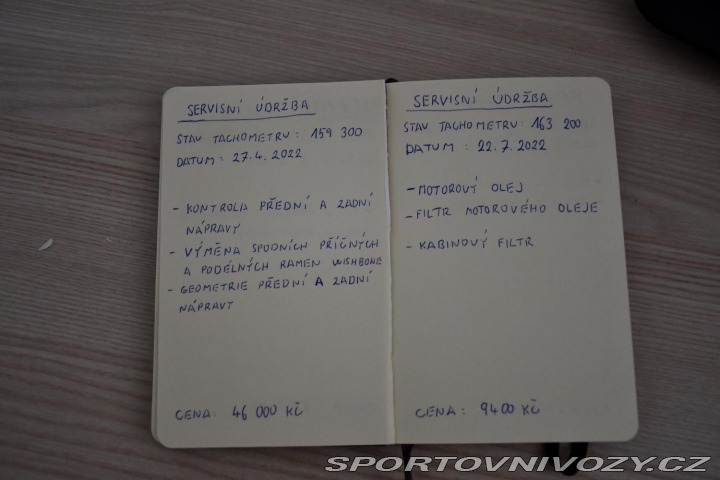 SERVISNÍ ÚDRŽBA
STAV TACHOMETRU: 159 300
DATUM: 27.4.2022
- KONTROLA PŘEDNÍ A ZADNÍ
NÁPRAVY
- VÝMĚNA SPODNÍCH PŘÍČNÝCH
A PODÉLNÝCH RAMEN WISHBONE
- GEOMETRIE PŘEDNÍ A ZADNÍ
NÁPRAVY
CENA: 46 000 KČ
SERVISNÍ ÚDRŽBA
STAV TACHOMETRU: 163 200
DATUM: 22.7.2022
- MOTOROVÝ OLEJ
- FILTR MOTOROVÉHO OLEJE
- KABINOVÝ FILTR
CENA: 9400 KČ
SPORTOVNIVOZY.CZ